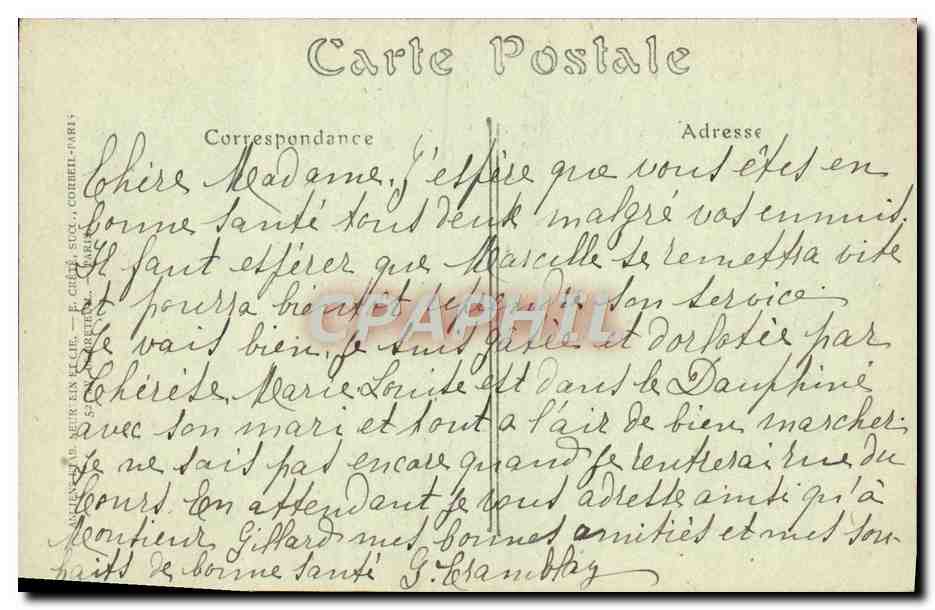 Carte Postale
Correspondance
Adresse
Chère Madame, J'espère que vous êtes en
bonne santé tous deux malgré vos ennuis.
Il faut espérer que Marcelle se remettra vite
et pourra bientôt reprendre son service.
Je vais bien, je suis gâtée et dorlotée par
Thérèse. Marie Louise est dans le Dauphiné
avec son mari et tout a l'air de bien marcher.
Je ne sais pas encore quand je rentrerai rue du
Cours. En attendant je vous adresse ainsi qu'à
Monsieur Gillard mes bonnes amitiés et mes sou-
haits de bonne santé G. Tramblay
CPAPHIL
NEURDEIN ET CIE. — E. CRÉTÉ, SUCC., CORBEIL-PARIS
PARIS